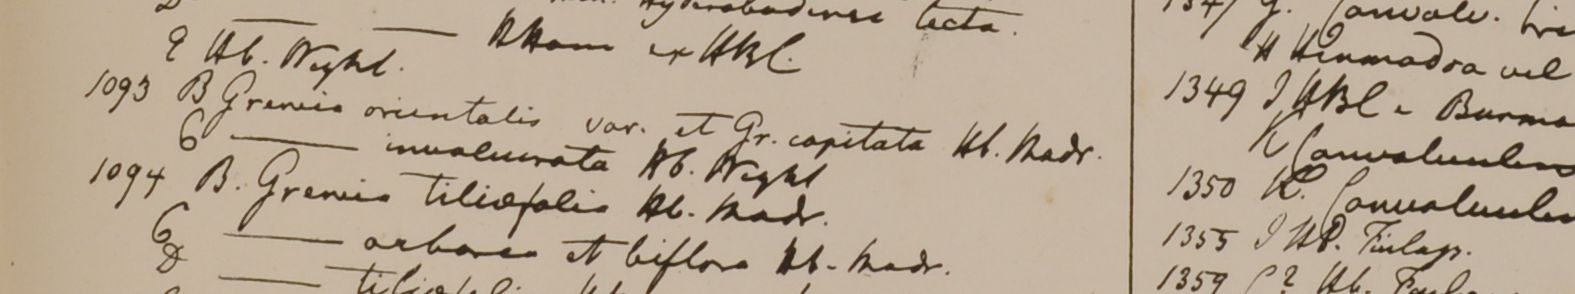 Hyderabadensi tecta.
E — — Hb. Wight. Ham ex HBC.
1093 B Grewia orientalis var. et Gr. capitata Hb. Madr.
C — involucrata Hb. Wight
1094 B. Grewia tiliæfolia Hb. Madr.
C — arborea et biflora Hb. Madr.
D —
1347 G. Convolv.
H
1349 I HBC e Burma
K Convolvulus
1350 K. Convolvulus
1355 I Hb. Finlays.
1359 C? Hb.